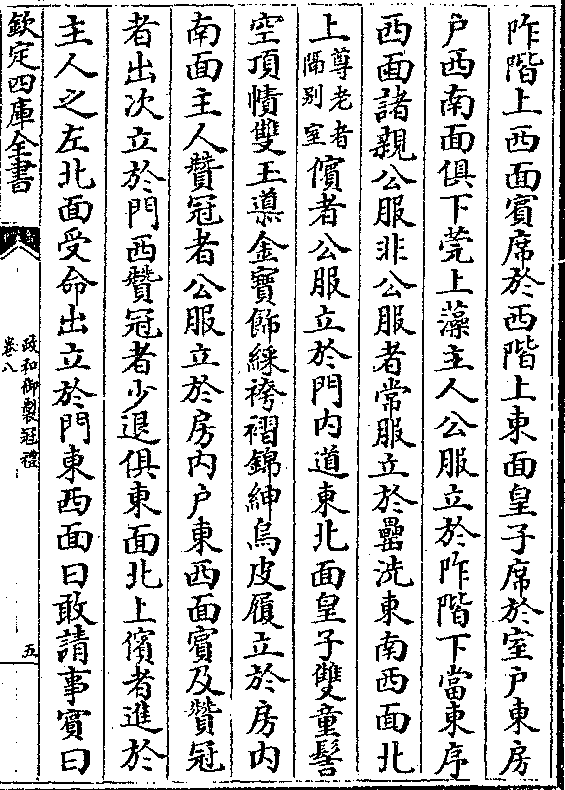 阼階上西面賓席於西階上東面皇子席於室户東房
户西南面俱下莞上藻主人公服立於阼階下當東序
西面諸親公服非公服者常服立於罍洗東南西面北
上尊老者隔别室儐者公服立於門内道東北面皇子雙童髻
空頂幘雙玉導金寶飾綵袴褶錦紳烏皮履立於房内
南面主人贊冠者公服立於房内户東西面賓及贊冠
者出次立於門西贊冠者少退俱東面北上儐者進於
主人之左北面受命出立於門東西面曰敢請事賓曰
欽定四庫全書
政和御製冠禮
卷八
五